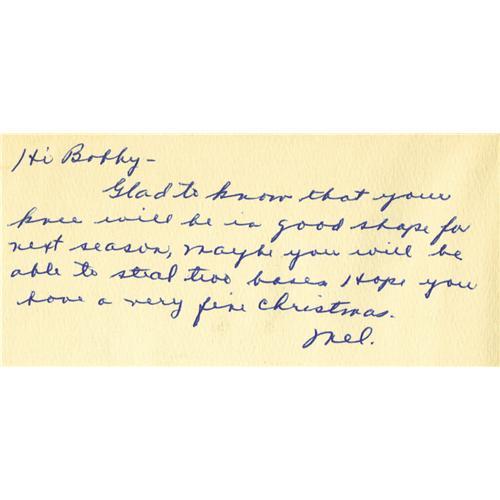 Hi Bobby-
Glad to know that your
knee will be in good shape for
next season, maybe you will be
able to steal two bases. Hope you
have a very fine Christmas.
Mel.